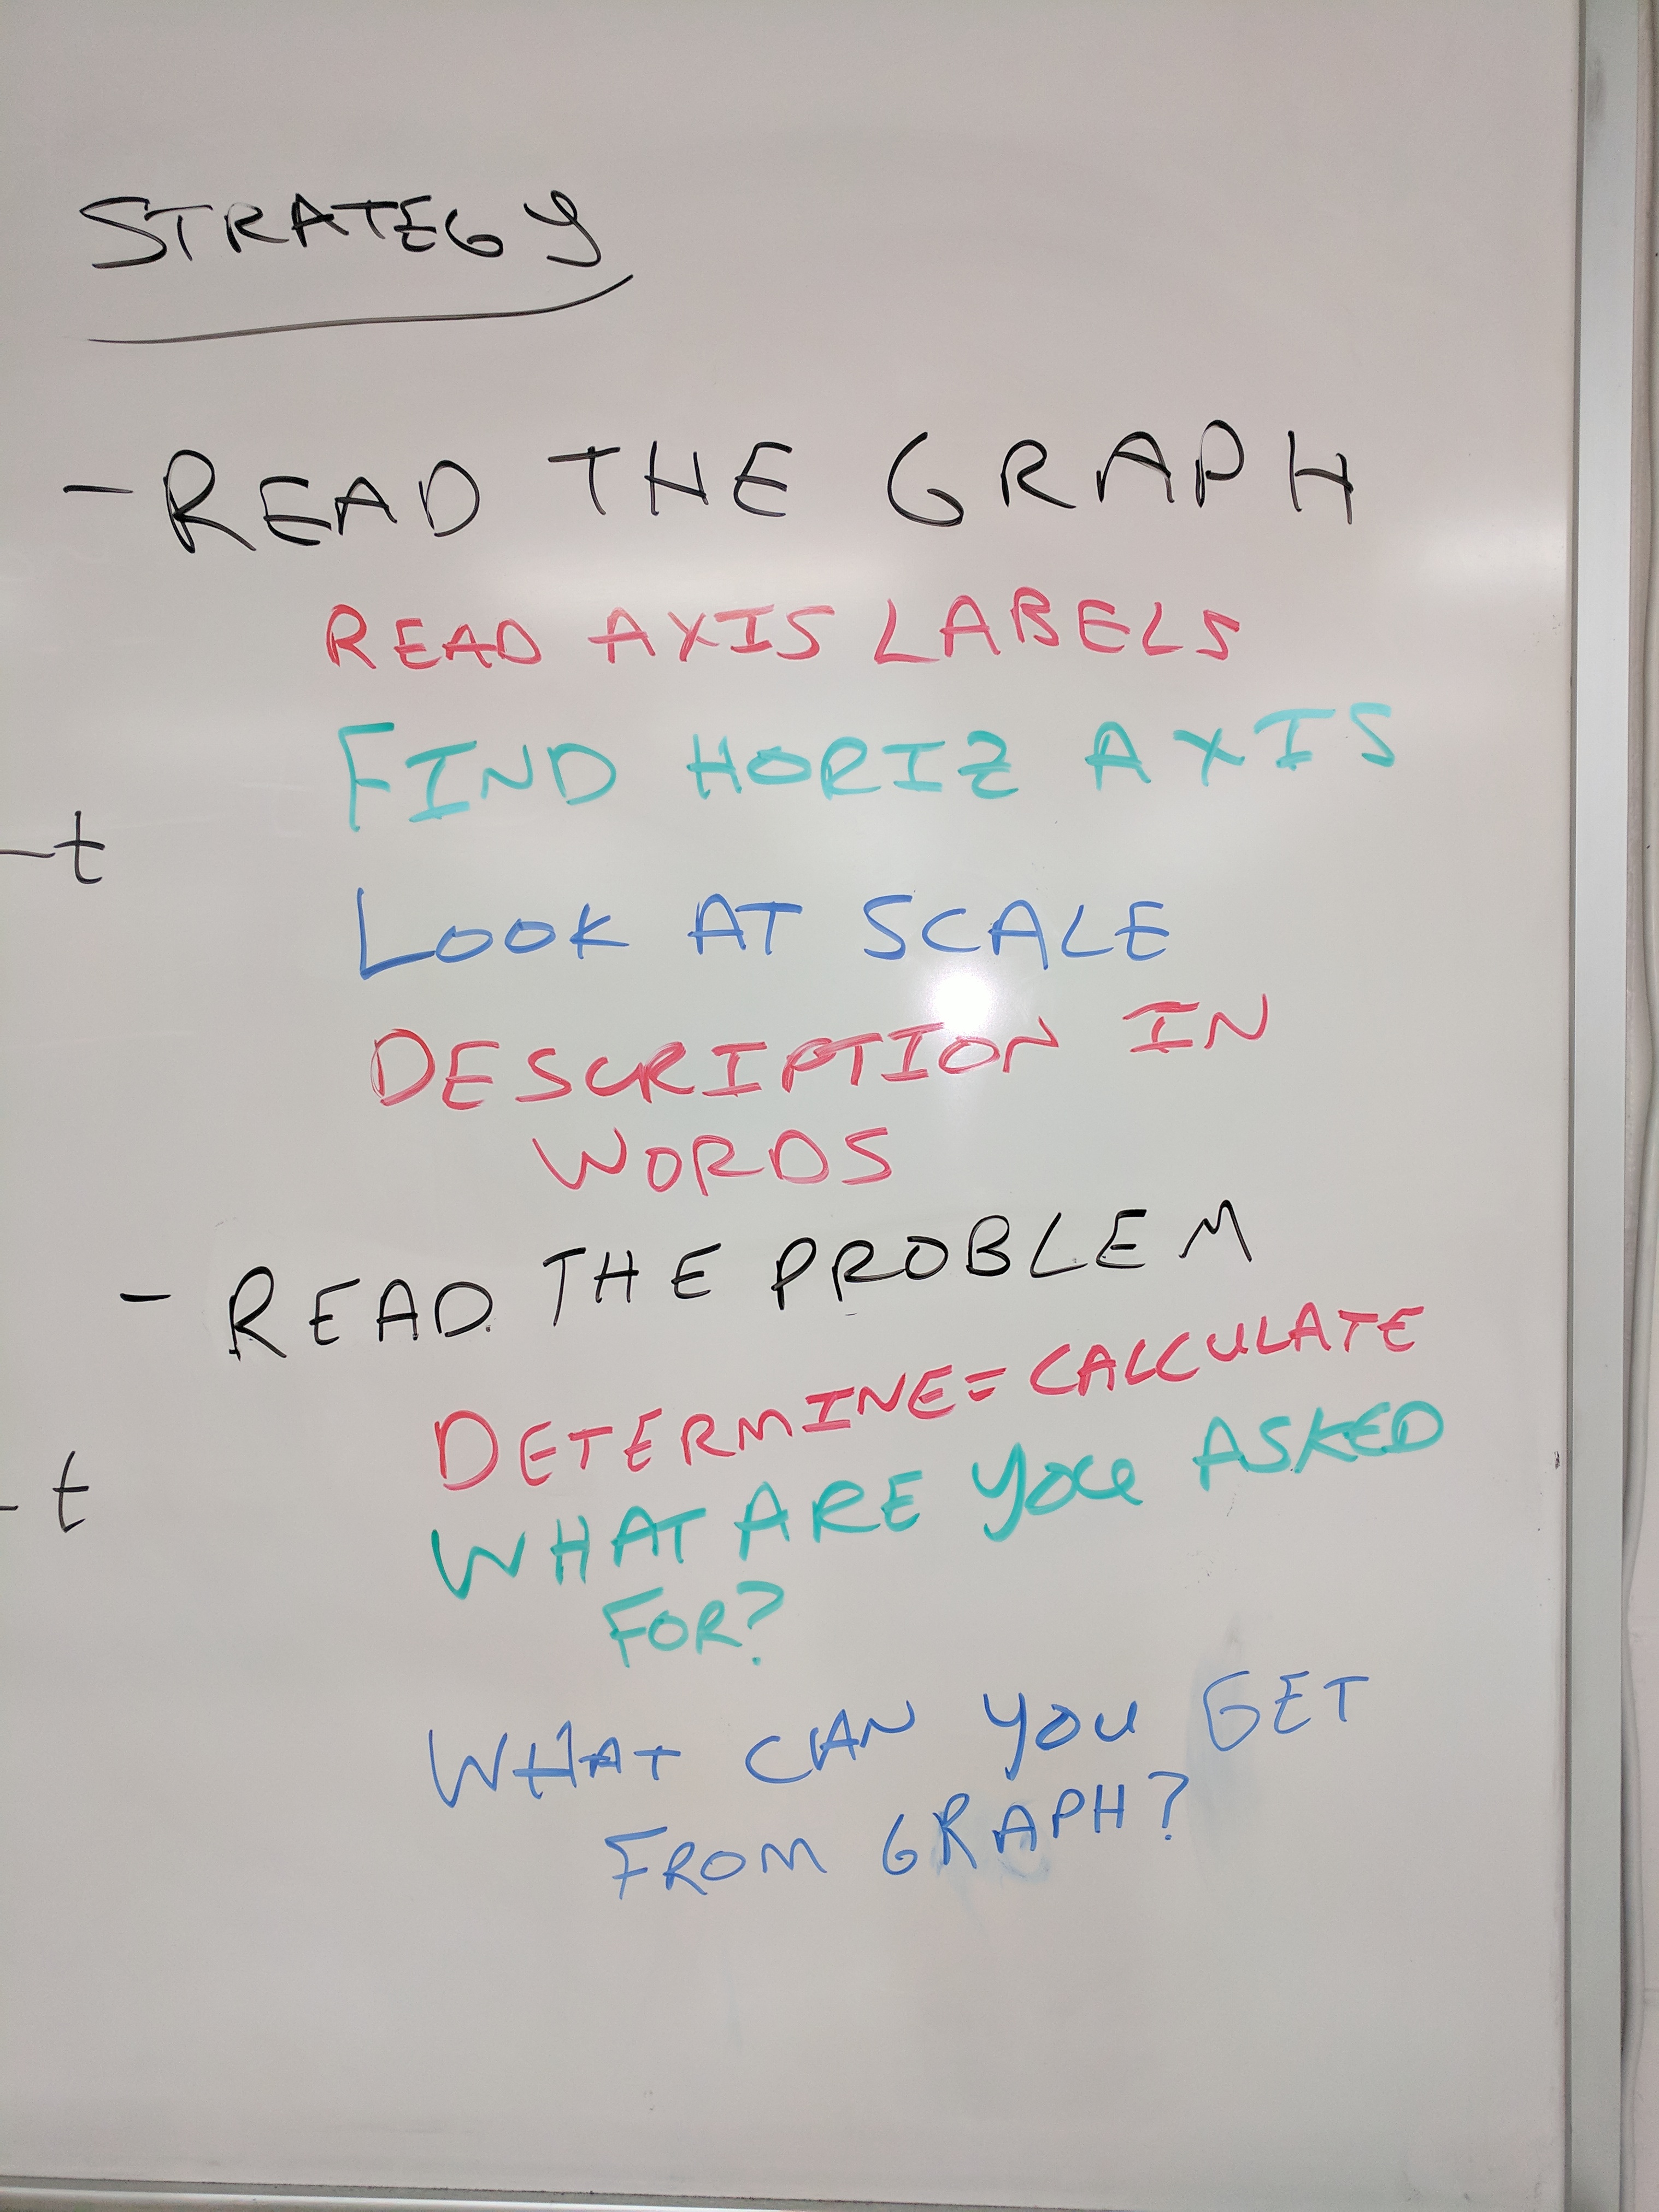 STRATEGY
- READ THE GRAPH
READ AXIS LABELS
FIND HORIZ AXIS
t
LOOK AT SCALE
DESCRIPTION IN
WORDS
- READ THE PROBLEM
DETERMINE = CALCULATE
WHAT ARE YOU ASKED
t
FOR?
WHAT CAN YOU GET
FROM GRAPH?